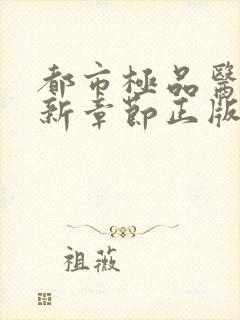 都市極品醫
新章節正版
祖薇